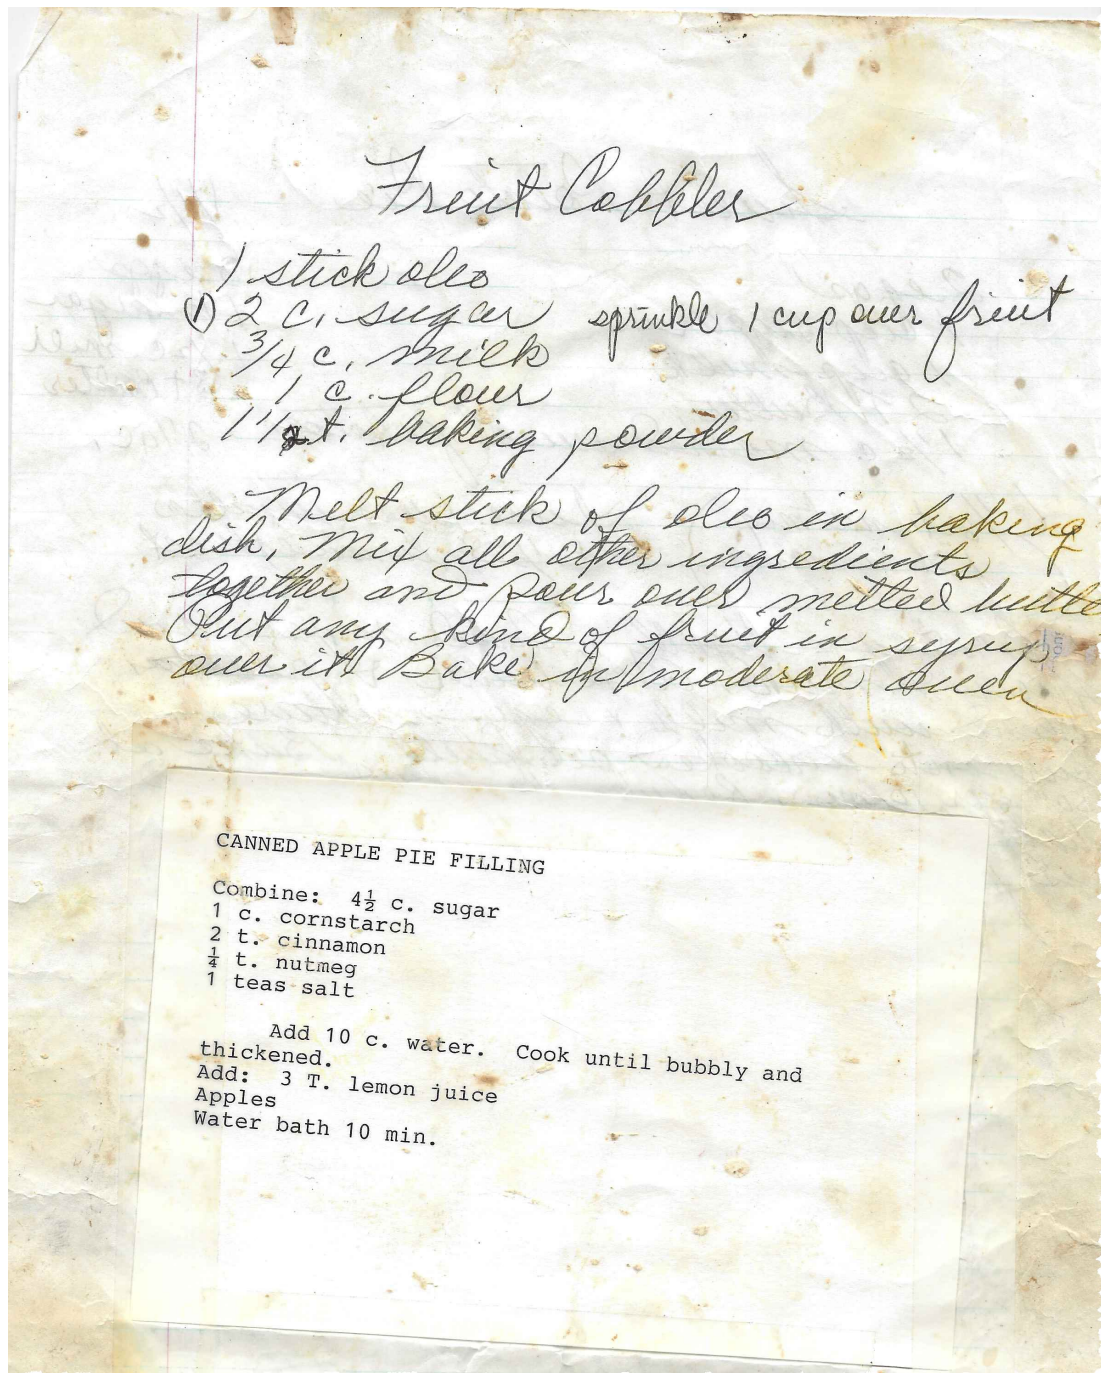 Fruit Cobbler
1 stick oleo
(1) 2 c. sugar sprinkle 1 cup over fruit
3/4 c. milk
1 c. flour
1 1/2 t. baking powder
Melt stick of oleo in baking
dish, Mix all other ingredients
together and pour over melted butte
Put any kind of fruit in syrup
over it. Bake in moderate oven
CANNED APPLE PIE FILLING
Combine: 4½ c. sugar
1 c. cornstarch
2 t. cinnamon
¼ t. nutmeg
1 teas salt
Add 10 c. water. Cook until bubbly and
thickened.
Add: 3 T. lemon juice
Apples
Water bath 10 min.